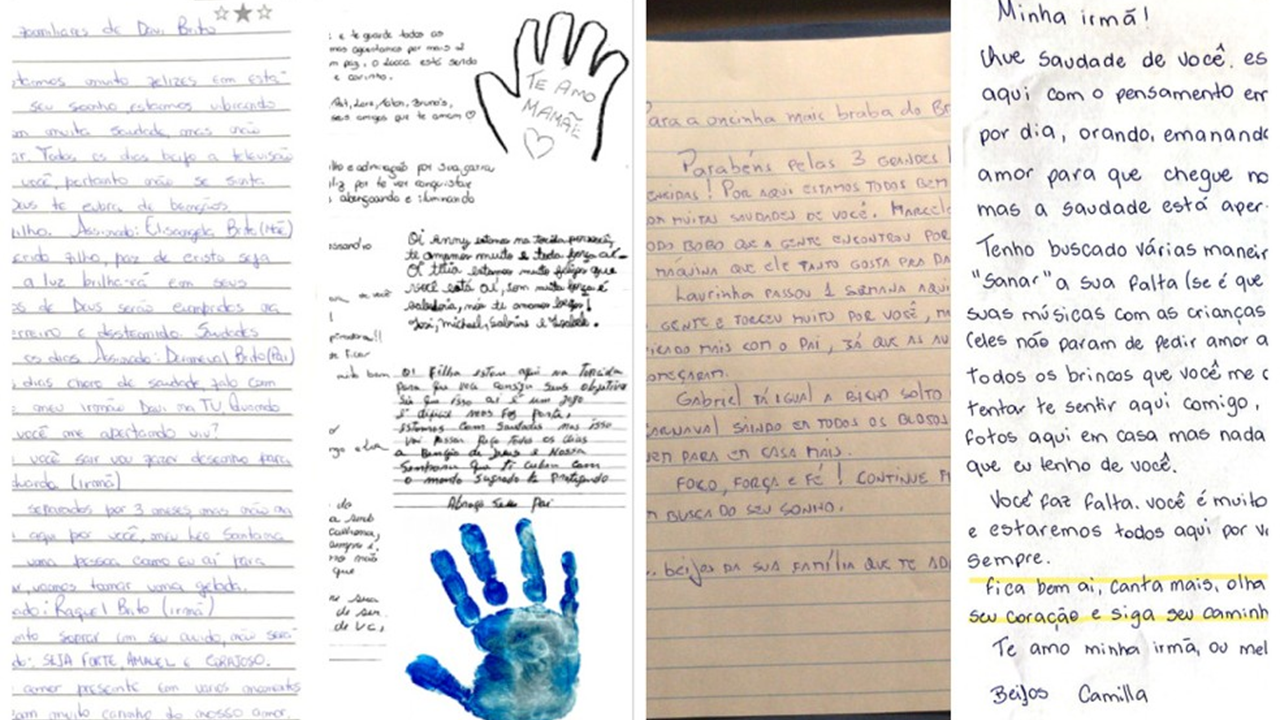 familiares de Davi Brito
estamos muito felizes com esta
seu sonho, estamos vibrando
com muita saudade, mas não
ar. Todos os dias beijo a televisão
você, portanto não se sinta
Deus te cubra de bençãos
filho. Assinado: Elisangela Brito (Mãe)
querido filho, paz de cristo seja
a luz brilhará em seus
os de Deus serão cumpridos na
erreiro e destemido. Saudades
os dias Assinado: Demeval Brito (Pai)
dias choro de saudade, falo com
meu irmão Davi na TV. Quando
você me apertando viu?
você sair vou fazer desenho para
(irmã)
separados por 3 meses, mas não
aqui por você, meu Leo Santana
uma pessoa como eu aí para
vamos tomar uma gelada.
Raquel Brito (irmã)
soprar em seu ouvido, não será
do: SEJA FORTE, AMÁVEL E CORAJOSO.
amor presente em vários momentos
com muito carinho do nosso amor.
e te guarde todos os
mos aguentamos por mais
m paz, o Lucca está sendo
e carinho.
seus amigos que te amam ♡
e admiração por sua garra
liz por te ver conquistar
abençoando e iluminando
TE AMO
MAMÃE
Oi Anny estamos na torcida por você,
te amamos muito e toda força aí
Oi titia estamos muito felizes que
você está aí, tem muita força e
sabedoria, nós te amamos
José, Michael, Sabrina e
Oi Filha estou aqui na Torcida
para que vca consiga seus objetivos
Sei que isso aí é um jogo
é difícil mas Foz parte,
estamos com Saudades mas isso
vai passar Peço Todos os dias
a Benção de Jesus e Nossa
Senhora que Ti cubra com
o manto Sagrado te Protegendo
Abraço Seu Pai
que
de ser
de vc,
Para a oncinha mais braba do Br
Parabéns pelas 3 grandes
encidas! Por aqui estamos todos bem
om muitas saudades de você. Marcelo
odo bobo que a gente encontrou por
máquina que ele tanto gosta pra da
Laurinha passou 1 semana aqui
gente e torceu muito por você, m
icado mais com o pai, já que as au
omeçaram.
Gabriel tá igual a bicho solto
carnaval saindo em todos os blocos
vem para em casa mais.
Foco, força e fé! Continue f
m busca do seu sonho.
beijos da sua família que te ado
Minha irmã!
Que saudade de você. es
aqui com o pensamento em
por dia, orando, emanando
amor para que chegue no
mas a saudade está aper
Tenho buscado várias maneir
"Sanar" a sua falta (se é que
suas músicas com as crianças
(eles não param de pedir amor a
todos os brincos que você me d
tentar te sentir aqui comigo,
fotos aqui em casa mas nada
que eu tenho de você.
Você faz falta. você é muito
e estaremos todos aqui por v
sempre.
fica bem ai, canta mais, olha
seu coração e siga seu caminh
Te amo minha irmã, ou mel
Beijos Camilla